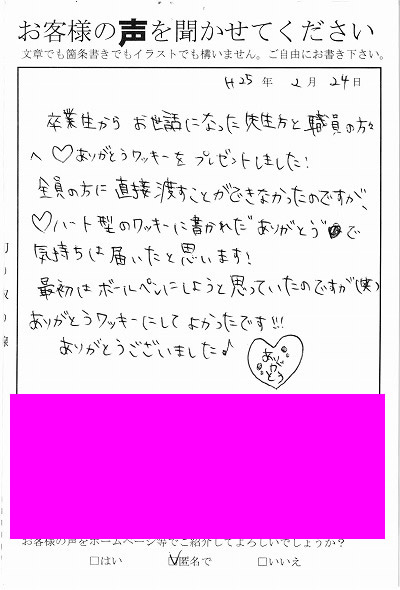 お客様の声を聞かせてください
文章でも箇条書きでもイラストでも構いません。ご自由にお書き下さい。
H25年 2月 24日
卒業生から お世話になった先生方と職員の方々
へ ♡ありがとうクッキーを プレゼントしました!
全員の方に直接渡すことができなかったのですが、
♡ハート型のクッキーに書かれた"ありがとう"で
気持ちは届いたと思います!
最初はボールペンにしようと思っていたのですが(笑)
ありがとうクッキーにして よかったです!!!
ありがとうございました♪
ありがとう
お客様の声をホームページ等でご紹介してよろしいでしょうか?
□はい ☑匿名で □いいえ